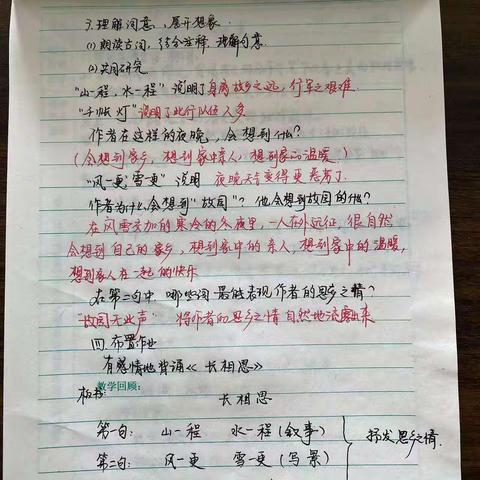 3.理解词意,展开想象.
(1)朗读古词,结合注释,理解句意.
(2)共同研究
“山一程,水一程”说明了身离故乡之远,行军之艰难.
“千帐灯”说明了此行队伍人多
作者在这样的夜晚,会想到什么?
(会想到家乡,想到家中亲人,想到家的温暖.)
“风一更雪一更”说明 夜晚天气变得更恶劣了.
作者为什么会想到“故园”?他会想到故园的什么?
在风雪交加的寒冷的冬夜里,一人在外远征,很自然
会想到自己的家乡,想到家中的亲人,想到家中的温暖,
想到家人在一起的快乐
在第二句中,哪些词最能表现作者的思乡之情?
“故园无此声” 将作者的思乡之情自然地流露出来
四.布置作业
有感情地背诵《长相思》
教学回顾:
板书: 长相思
第一句: 山一程 水一程(叙事)
抒发思乡之情.
第二句: 风一更 雪一更(写景)